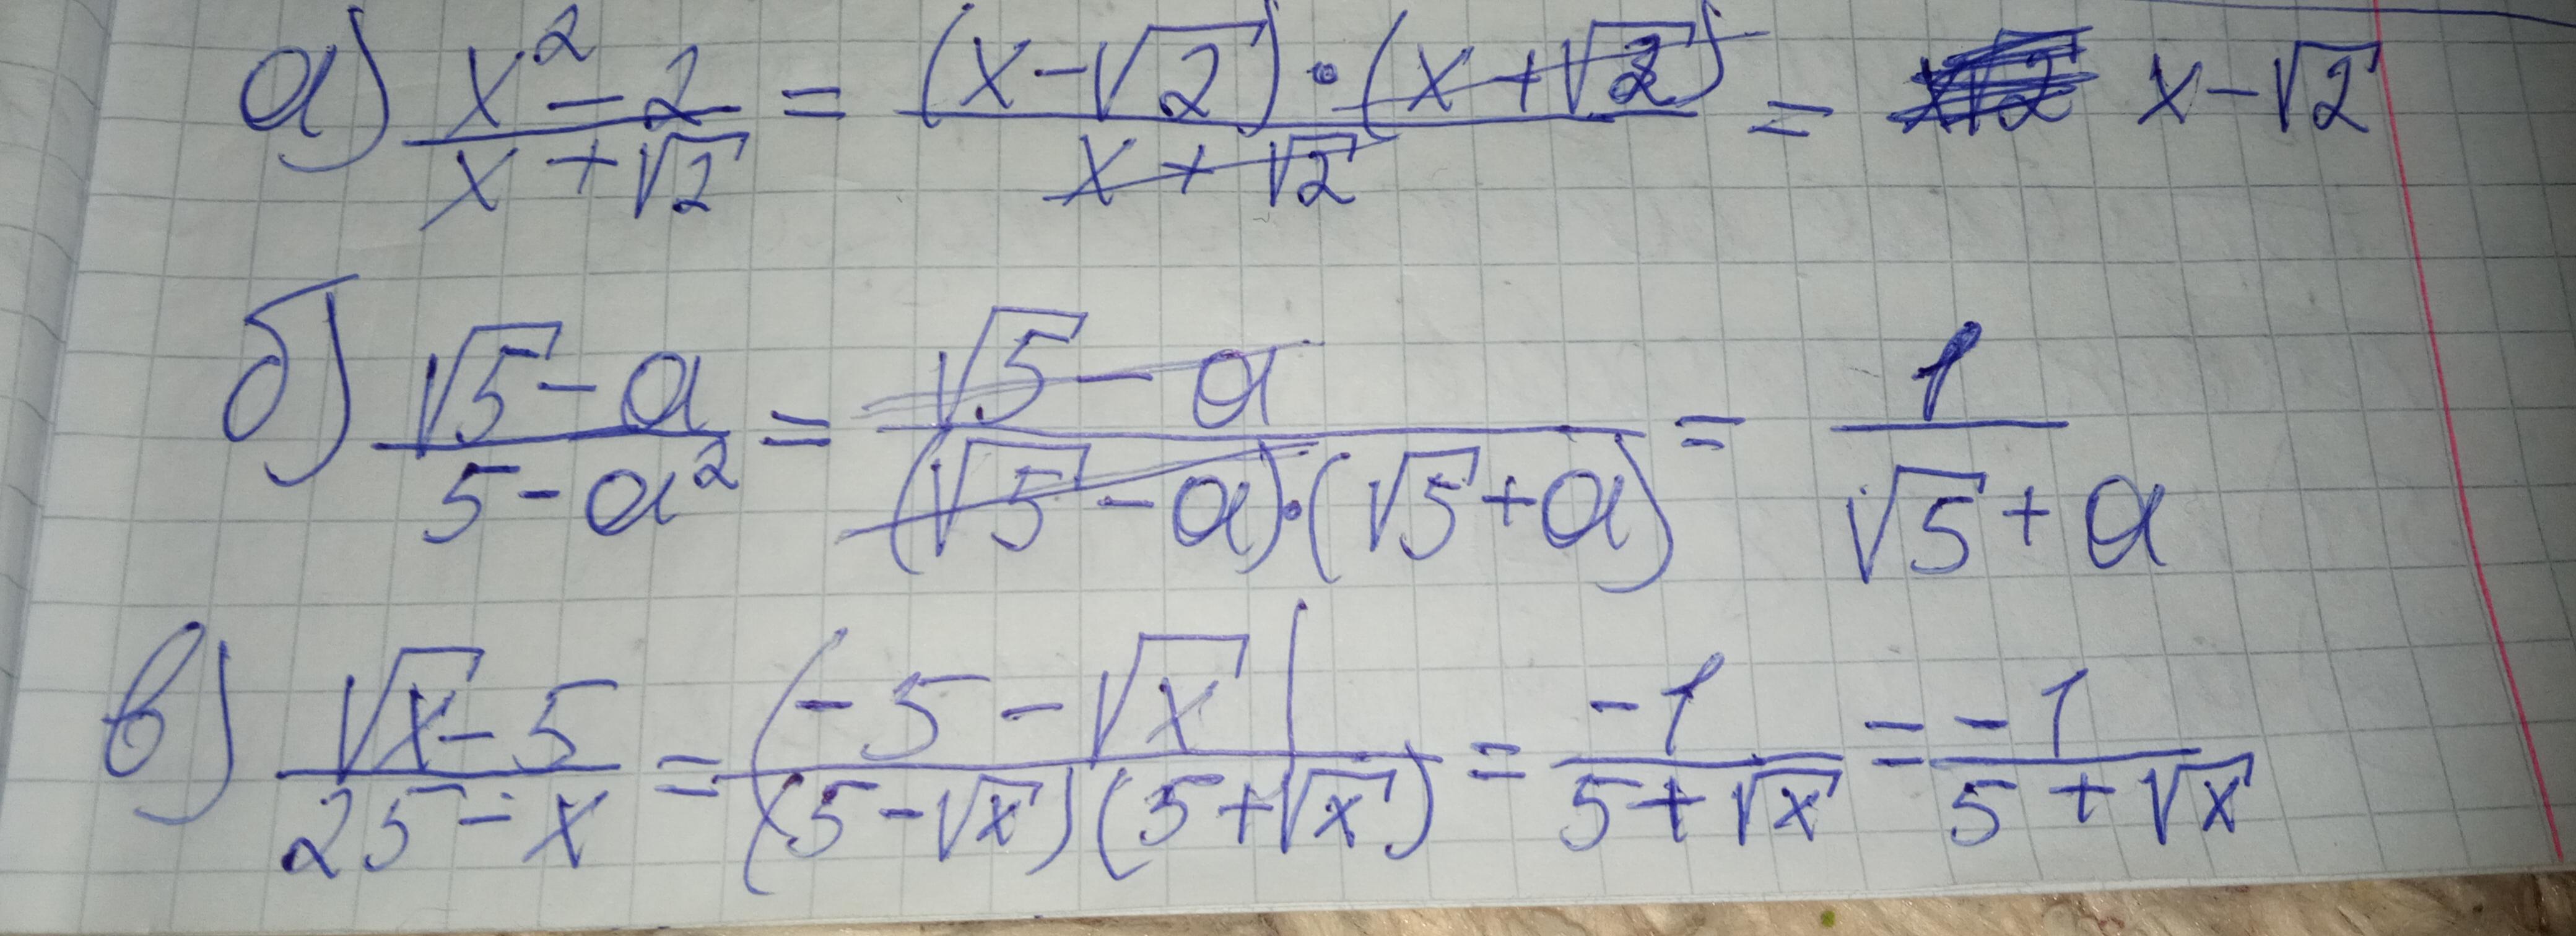 а) (x² - 2)/(x + √2) = ((x - √2) · (x + √2))/(x + √2) = x - √2
б) (√5 - a)/(5 - a²) = (√5 - a)/((√5 - a) · (√5 + a)) = 1/(√5 + a)
в) (√x - 5)/(25 - x) = (-5 - √x)/((5 - √x)(5 + √x)) = -1/(5 + √x) = -1/(5 + √x)